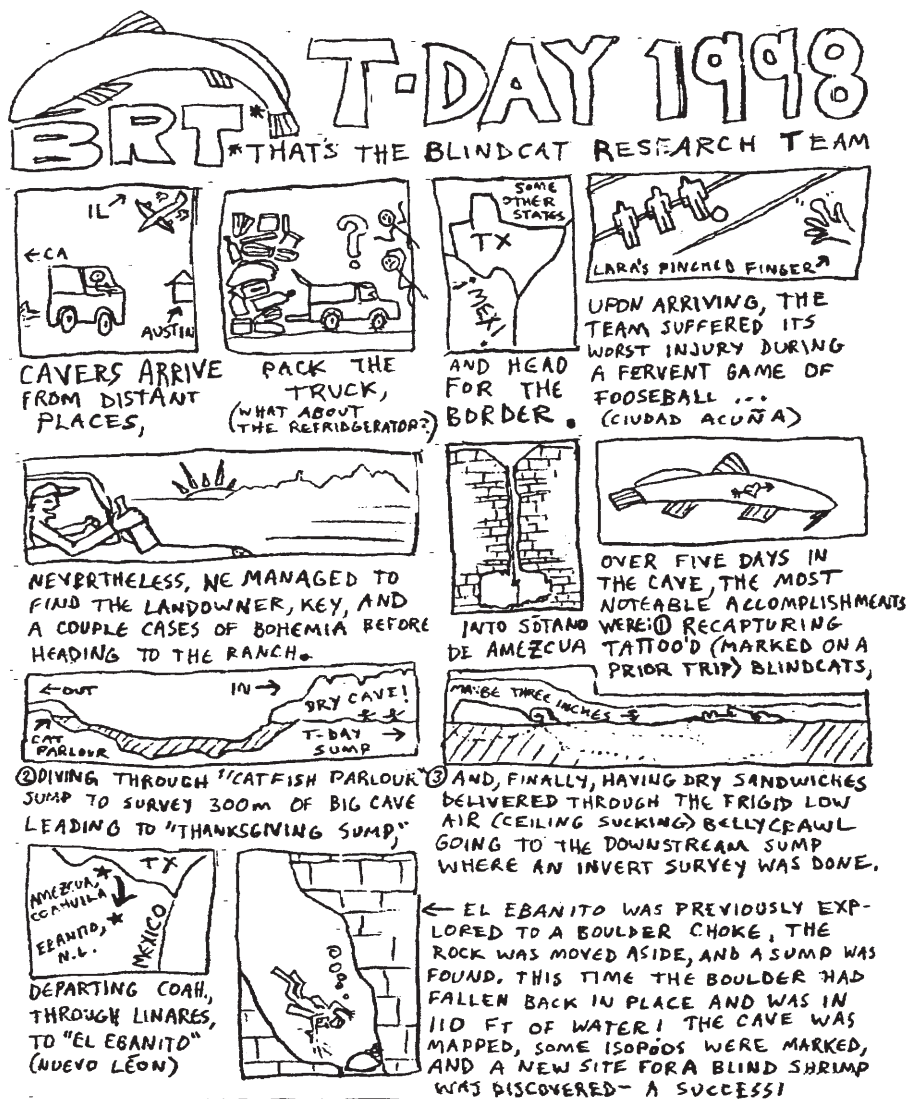 T-DAY 1998
BRT*
*THAT'S THE BLINDCAT RESEARCH TEAM
IL
CA
AUSTIN
CAVERS ARRIVE
FROM DISTANT
PLACES,
?
PACK THE
TRUCK,
(WHAT ABOUT
THE REFRIDGERATOR?)
SOME
OTHER
STATES
TX
MEXI
AND HEAD
FOR THE
BORDER.
LARA'S PINCHED FINGER
UPON ARRIVING, THE
TEAM SUFFERED ITS
WORST INJURY DURING
A FERVENT GAME OF
FOOSEBALL ...
(CIUDAD ACUÑA)
NEVERTHELESS, WE MANAGED TO
FIND THE LANDOWNER, KEY, AND
A COUPLE CASES OF BOHEMIA BEFORE
HEADING TO THE RANCH.
INTO SÓTANO
DE AMEZCUA
OVER FIVE DAYS IN
THE CAVE, THE MOST
NOTEABLE ACCOMPLISHMENTS
WERE:① RECAPTURING
TATTOO'D (MARKED ON A
PRIOR TRIP) BLINDCATS,
←OUT
IN →
DRY CAVE!
CAT
PARLOUR
T-DAY
SUMP →
②DIVING THROUGH "CATFISH PARLOUR"
SUMP TO SURVEY 300m OF BIG CAVE
LEADING TO "THANKSGIVING SUMP,"
MAYBE THREE INCHES
③ AND, FINALLY, HAVING DRY SANDWICHES
DELIVERED THROUGH THE FRIGID LOW
AIR (CEILING SUCKING) BELLYCRAWL
GOING TO THE DOWNSTREAM SUMP
WHERE AN INVERT SURVEY WAS DONE.
TX
AMEZCUA,
COAHUILA
EBANITO,
N.L.
MEXICO
DEPARTING COAH.,
THROUGH LINARES,
TO "EL EBANITO"
(NUEVO LÉON)
← EL EBANITO WAS PREVIOUSLY EXP-
LORED TO A BOULDER CHOKE, THE
ROCK WAS MOVED ASIDE, AND A SUMP WAS
FOUND. THIS TIME THE BOULDER HAD
FALLEN BACK IN PLACE AND WAS IN
110 FT OF WATER! THE CAVE WAS
MAPPED, SOME ISOPODS WERE MARKED,
AND A NEW SITE FOR A BLIND SHRIMP
WAS DISCOVERED- A SUCCESS!